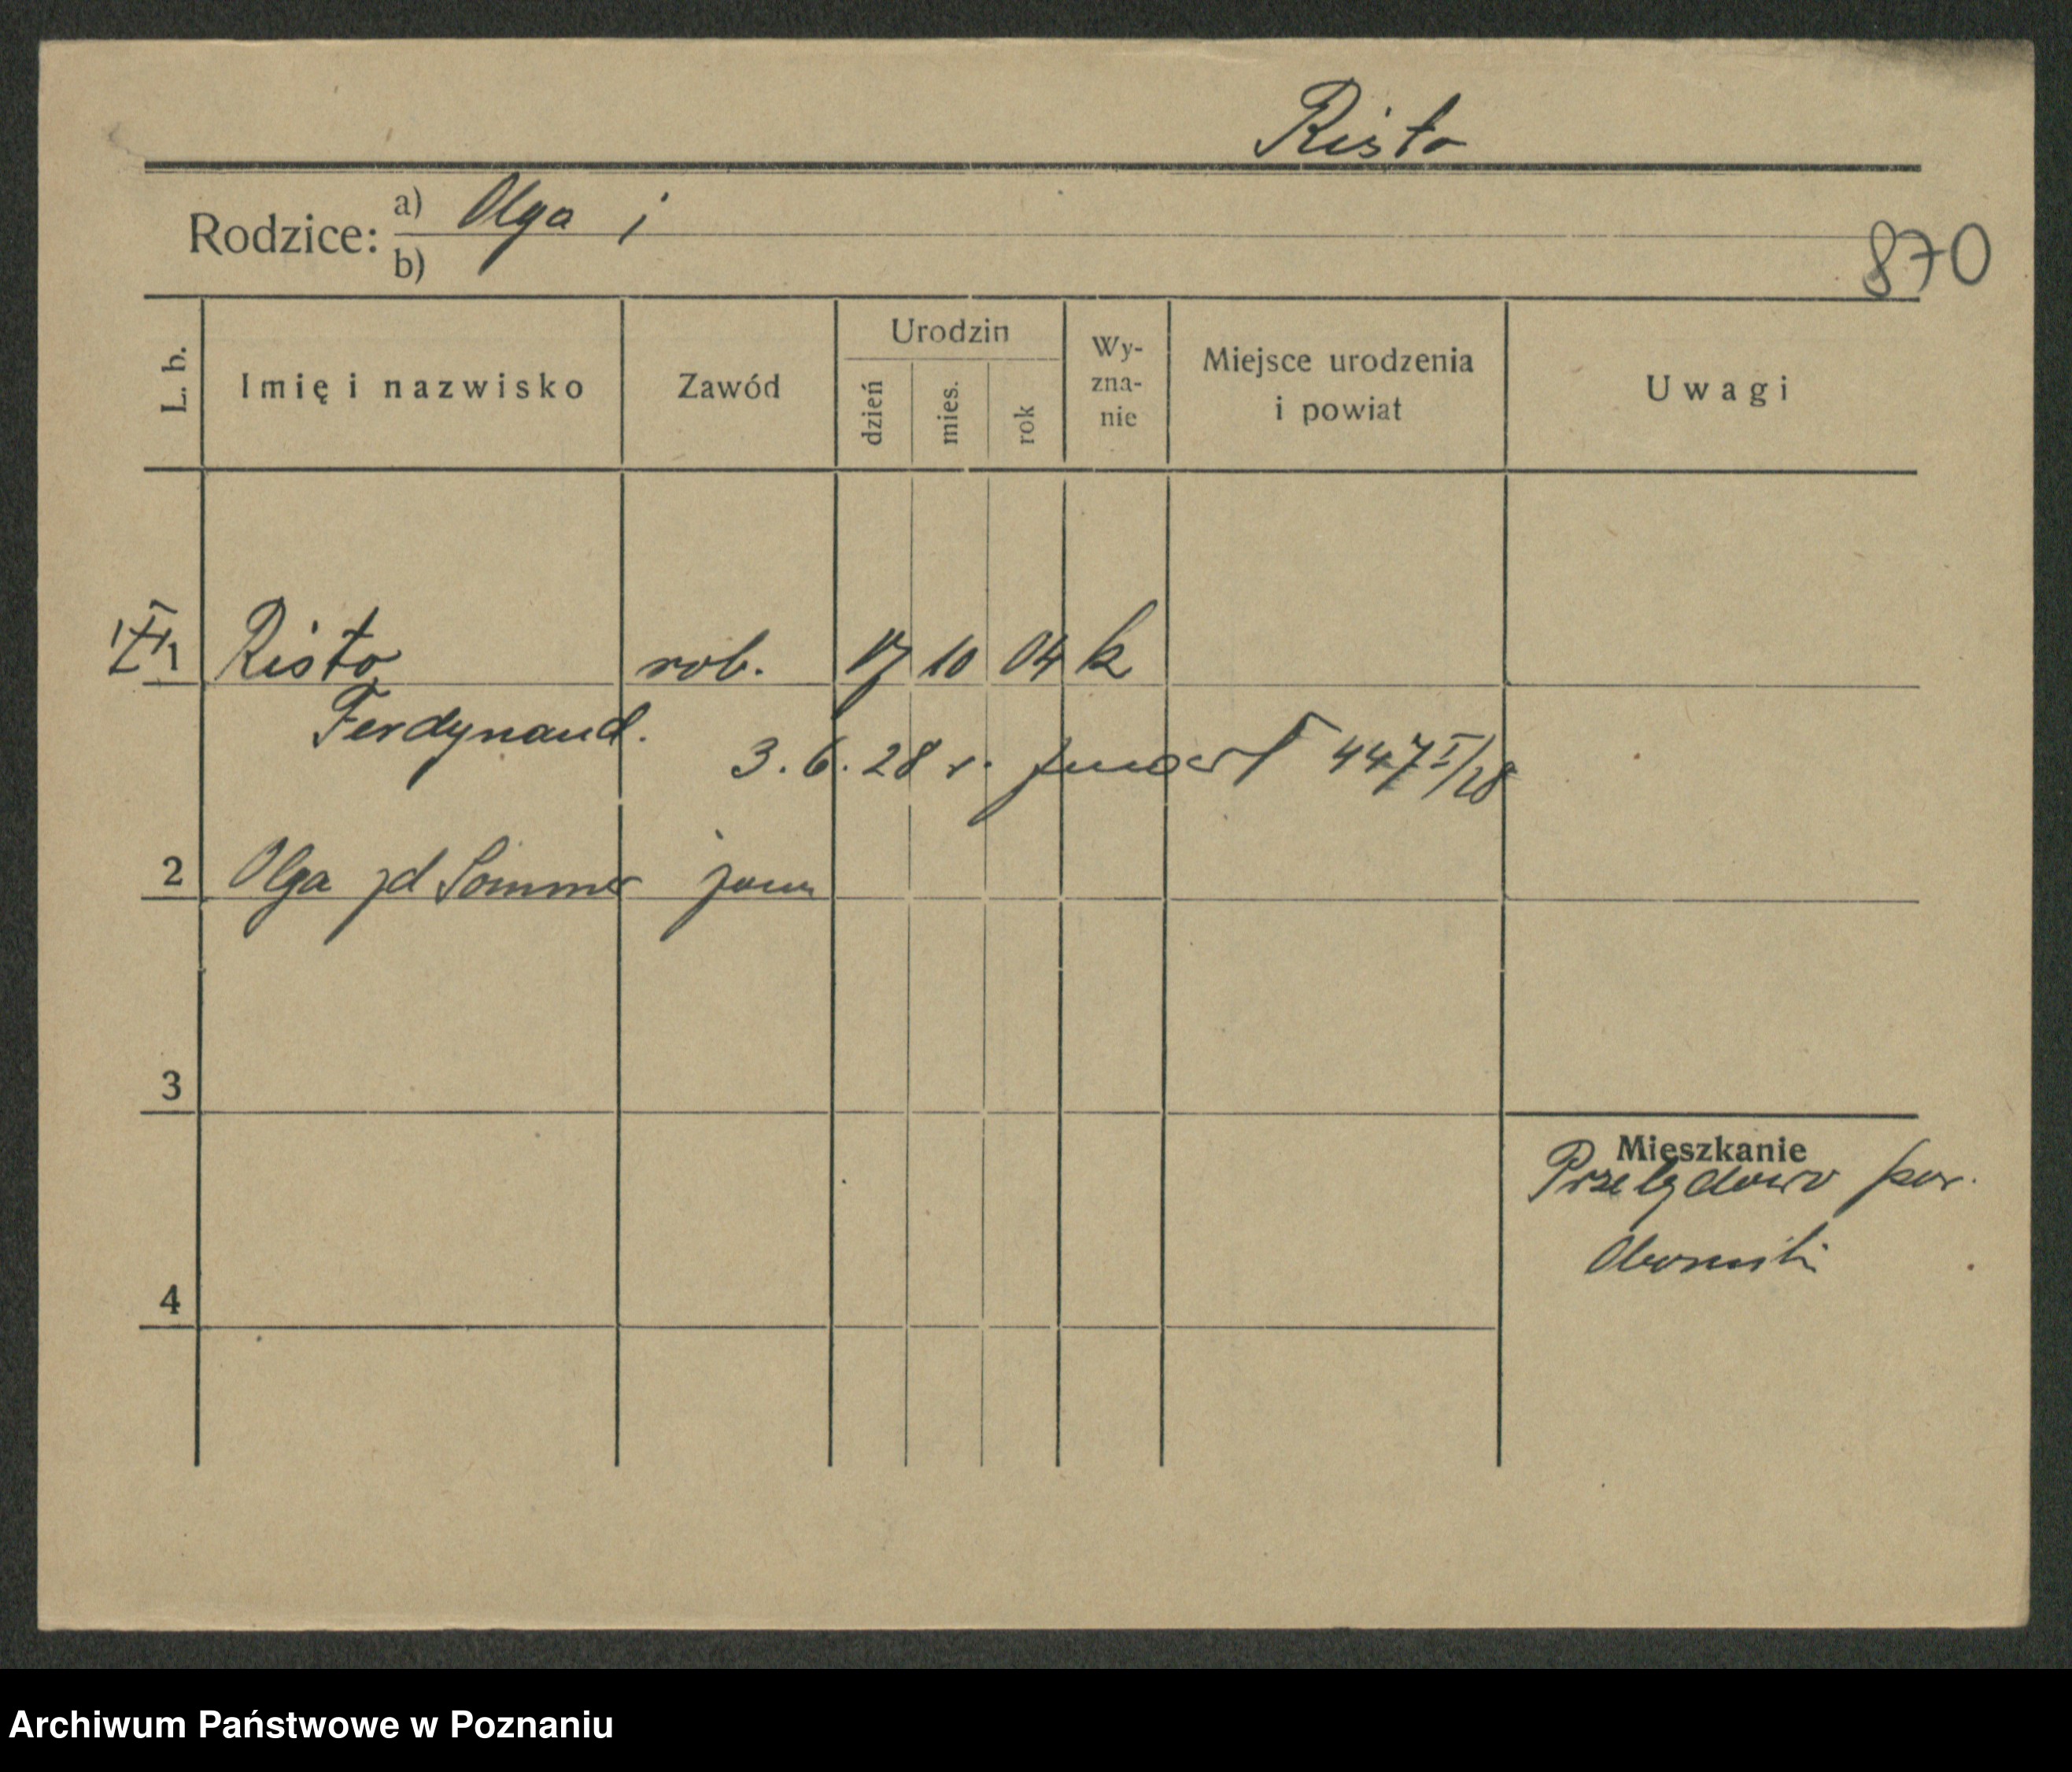 Risto
Rodzice: a) Olga i
b)
870
L. b. Imię i nazwisko Zawód Urodzin dzień mies. rok Wy-zna-nie Miejsce urodzenia i powiat Uwagi
1 Risto rob. 17 10 04 k
Ferdynand.
3. 6. 28 r. zmarł 447 I/28
2 Olga zd Sommer
3
Mieszkanie
pow.
Oborniki
4
Archiwum Państwowe w Poznaniu